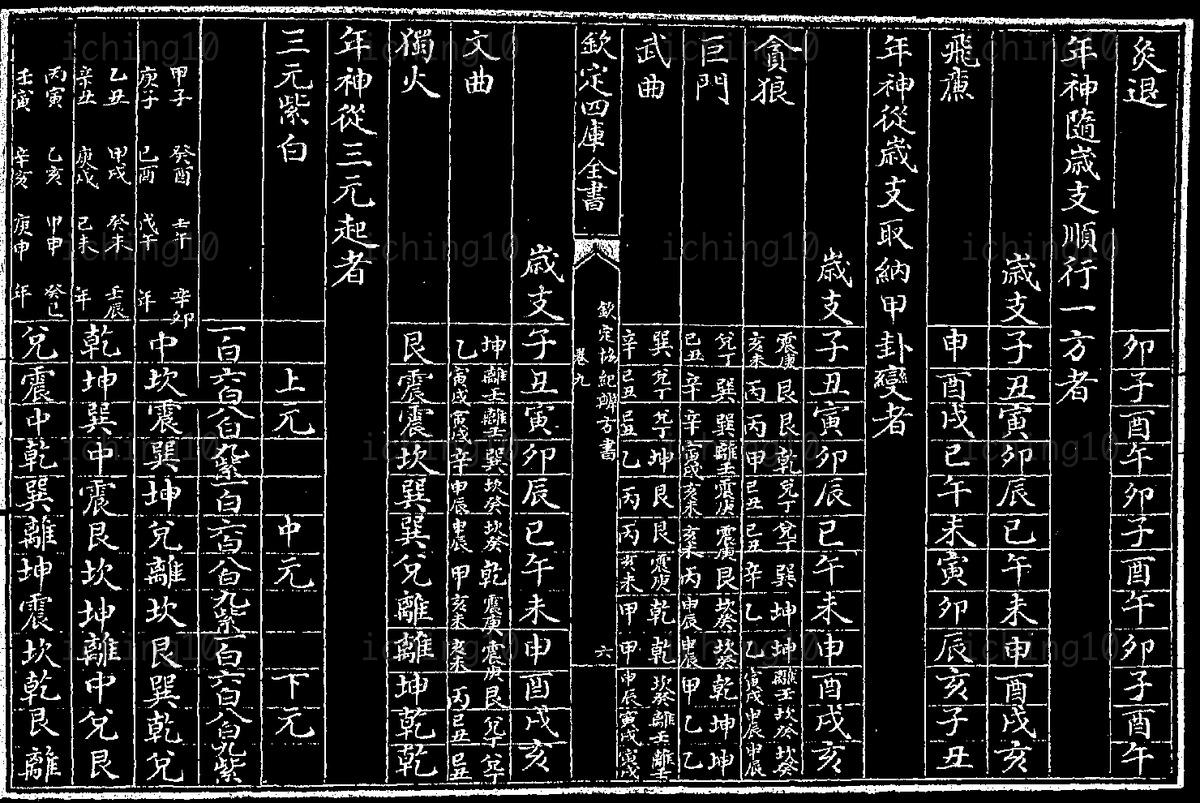 炙退 卯子酉午卯子酉午卯子酉午
年神隨歲支順行一方者
歲支 子丑寅卯辰巳午未申酉戌亥
飛廉 申酉戌巳午未寅卯辰亥子丑
年神從歲支取納甲卦變者
歲支 子丑寅卯辰巳午未申酉戌亥
貪狼 震庚亥未 艮丙 艮丙 乾甲 兌丁巳丑 兌丁巳丑 巽辛 坤乙 坤乙 離壬寅戌 坎癸申辰 坎癸申辰
巨門 兌丁巳丑 巽辛 巽辛 離壬寅戌 震庚亥未 震庚亥未 艮丙 坎癸申辰 坎癸申辰 乾甲 坤乙 坤乙
武曲 巽辛 兌丁巳丑 兌丁巳丑 坤乙 艮丙 艮丙 震庚亥未 乾甲 乾甲 坎癸申辰 離壬寅戌 離壬寅戌
欽定四庫全書
欽定協紀辨方書
卷九
六
歲支 子丑寅卯辰巳午未申酉戌亥
文曲 坤乙 離壬寅戌 離壬寅戌 巽辛 坎癸申辰 坎癸申辰 乾甲 震庚亥未 震庚亥未 艮丙 兌丁巳丑 兌丁巳丑
獨火 艮震震坎巽巽兌離離坤乾乾
年神從三元起者
三元紫白 上元 中元 下元
一白六白八白九紫一白六白八白九紫一白六白八白九紫
甲子 癸酉 壬午 辛卯
庚子 己酉 戊午 年 中坎震巽坤兌離坎艮巽乾兌
乙丑 甲戌 癸未 壬辰
辛丑 庚戌 己未 年 乾坤巽中震艮坎坤離中兌艮
丙寅 乙亥 甲申 癸巳
壬寅 辛亥 庚申 年 兌震中乾巽離坤震坎乾艮離
iching10 iching10 iching10 iching10
iching10 iching10 iching10 iching10
iching10 iching10 iching10 iching10
iching10 iching10 iching10 iching10